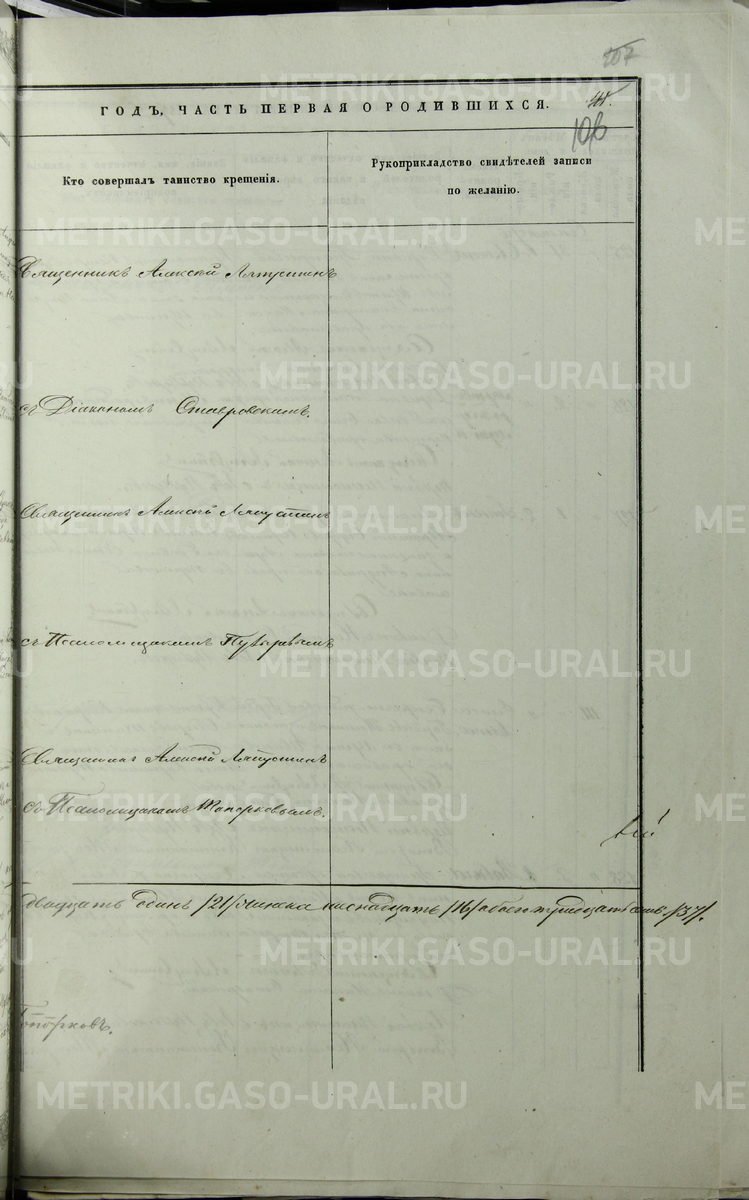 207
ГОДЪ, ЧАСТЬ ПЕРВАЯ О РОДИВШИХСЯ.
Кто совершалъ таинство крещенія.
Рукоприкладство свидѣтелей записи
по желанію.
Священникъ Алексій
съ Діакономъ Ставровскимъ.
Священникъ Алексій
съ Псаломщикомъ
Священникъ Алексій
съ Псаломщикомъ Топорковымъ.
двадцать одинъ /21/ женска шеснадцать /16/ обоего тридцать семь /37/.
Топорковъ.
METRIKI.GASO-URAL.RU